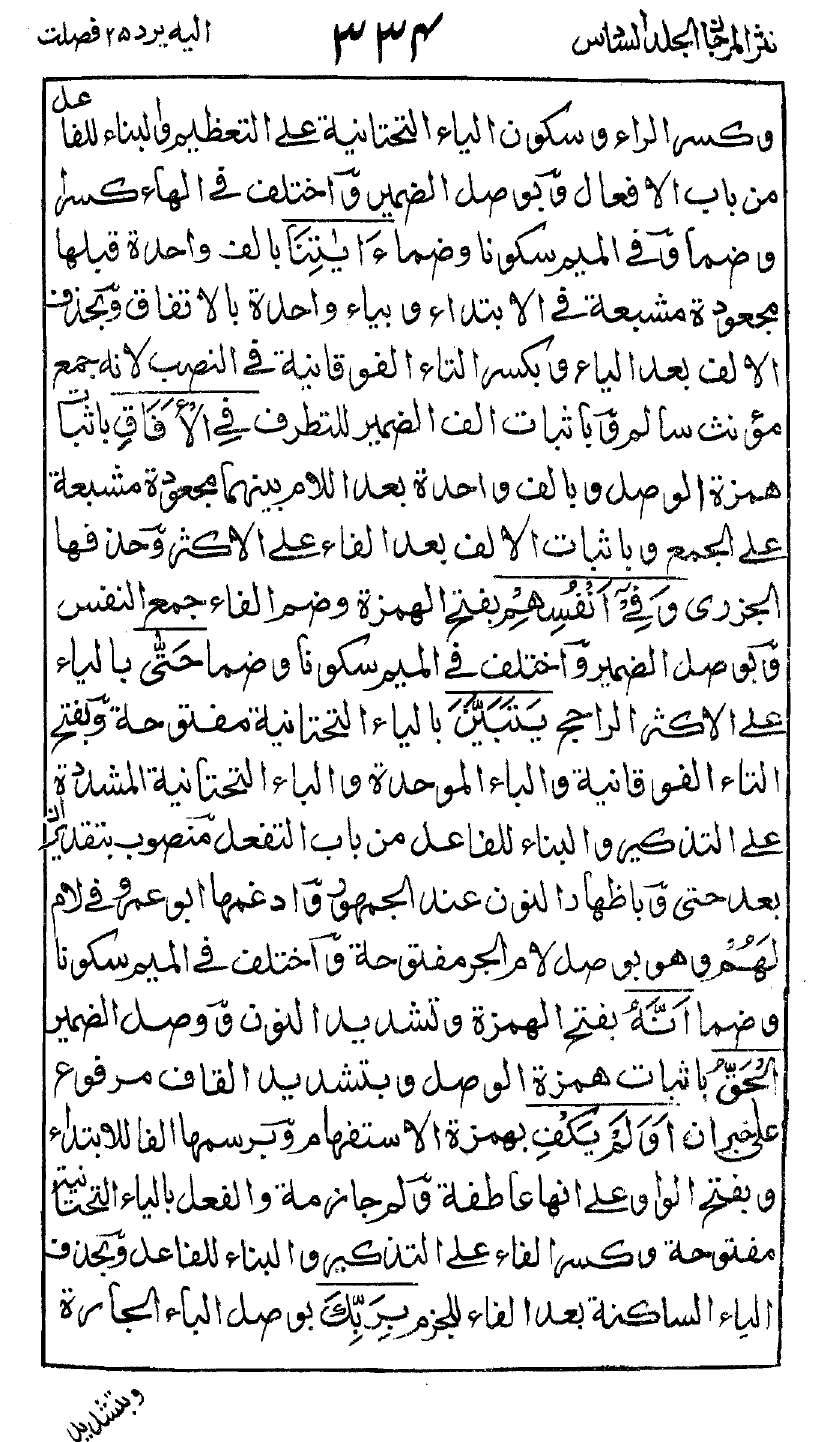 نثر المرجان الجلد السادس ٣٣٤ اليه يرد ٢٥ فصلت
وكسر الراء وسكون الياء التحتانية على التعظيم والبناء للفاعل
من باب الافعال وَبوصل الضمير وَاختلف فى الهاء كسرا
وضما وَفى الميم سكونا وضما ءَايٰتِنَا بالف واحدة قبلها
مجعودة مشبعة فى الابتداء وبياء واحدة بالاتفاق وَبحذف
الالف بعد الياء وبكسر التاء الفوقانية فى النصب لانه جمع
مؤنث سالم وَباثبات الف الضمير للتطرف فِى الْأٰفَاقِ باثبات
همزة الوصل وبالف واحدة بعد اللام بينهما مجعودة مشبعة
على الجمع وباثبات الالف بعد الفاء على الاكثر وَحذفها
الجزرى وَفِىٓ اَنْفُسِهِمْ بفتح الهمزة وضم الفاء جمع النفس
وَبوصل الضمير وَاختلف فى الميم سكونا وضما حَتّٰى بالياء
على الاكثر الراجح يَتَبَيَّنَ بالياء التحتانية مفتوحة وَبفتح
التاء الفوقانية والباء الموحدة والياء التحتانية المشددة
على التذكير والبناء للفاعل من باب التفعل منصوب بتقدير ان
بعد حتى وَباظهار النون عند الجمهور وَادغمها ابو عمرو فى لام
لَهُمْ وهو بوصل لام الجر مفتوحة وَاختلف فى الميم سكونا
وضما اَنَّهُ بفتح الهمزة وتشديد النون وَوصل الضمير
الْحَقُّ باثبات همزة الوصل وبتشديد القاف مرفوع
على خبر ان اَوَلَمْ يَكْفِ بهمزة الاستفهام وَبرسمها الفا للابتداء
وبفتح الواو على انها عاطفة وَلم جازمة والفعل بالياء التحتانية
مفتوحة وكسر الفاء على التذكير والبناء للفاعل وَبحذف
الياء الساكنة بعد الفاء للجزم بِرَبِّكَ بوصل الباء الجارة
وبتشديد